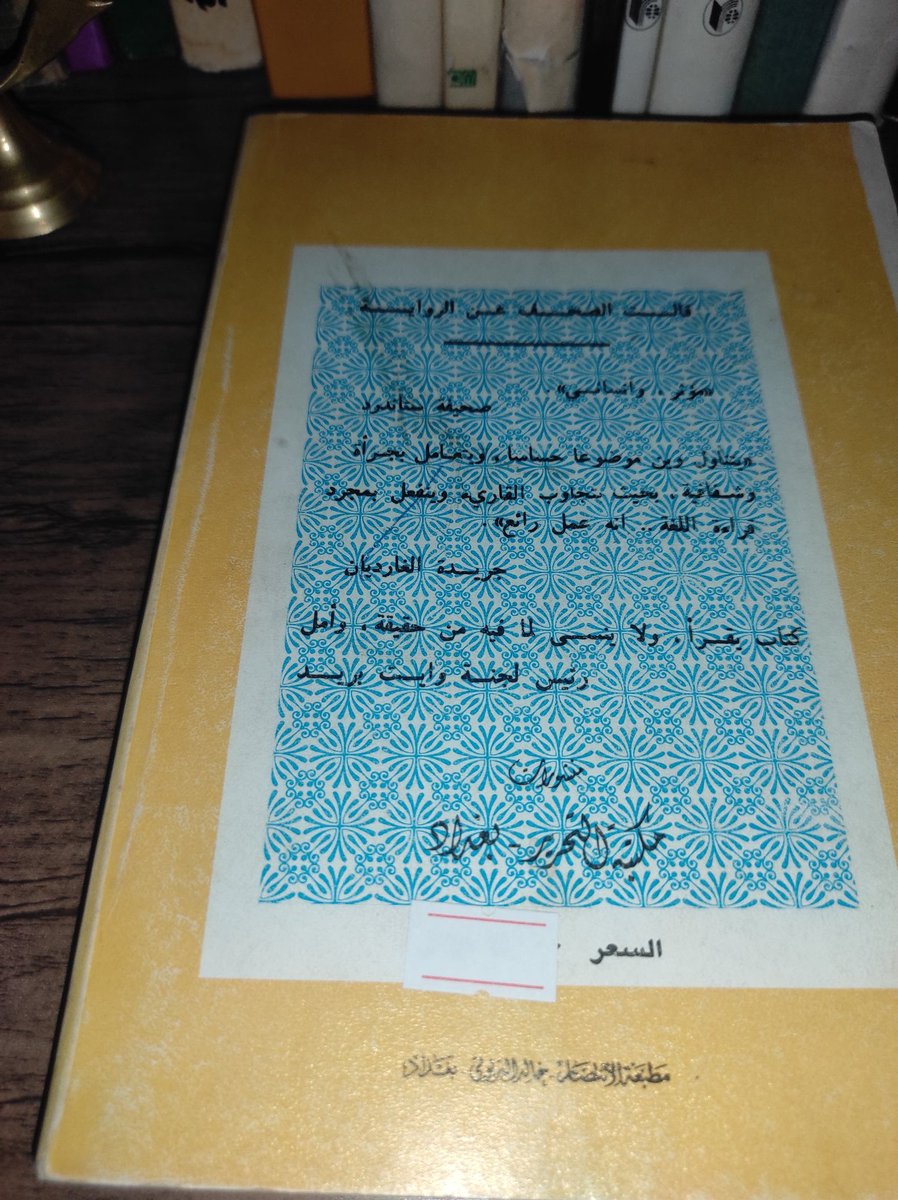 قالت الصحف عن الرواية
«مؤثر. وانساني»
صحيفة ستاندرد
«يتناول وين موضوعا حساسا، ويتعامل بجرأة
وشفافية، بحيث يتجاوب القارىء وينفعل بمجرد
قراءة اللغة.. انه عمل رائع».
جريدة الغارديان
كتاب يقرأ، ولا ينسى لما فيه من حقيقة، وأمل
رئيس لجنة وايت بريد
منشورات
مكتبة التحرير - بغداد
السعر
مطبعة الانتصار بغداد